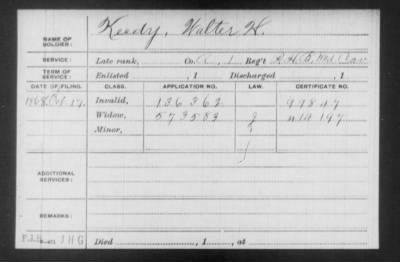 NAME OF SOLDIER: Keedy, Walter H.
SERVICE: Late rank, Co. A, 1 Reg't P.H.B. Md. Cav.
TERM OF SERVICE: Enlisted , 1 Discharged , 1
DATE OF FILING. CLASS. APPLICATION NO. LAW. CERTIFICATE NO.
1868, Oct. 17. Invalid, 136 362
Widow, 573583 414 197
Minor,
ADDITIONAL SERVICES:
REMARKS:
Died , 1 , at